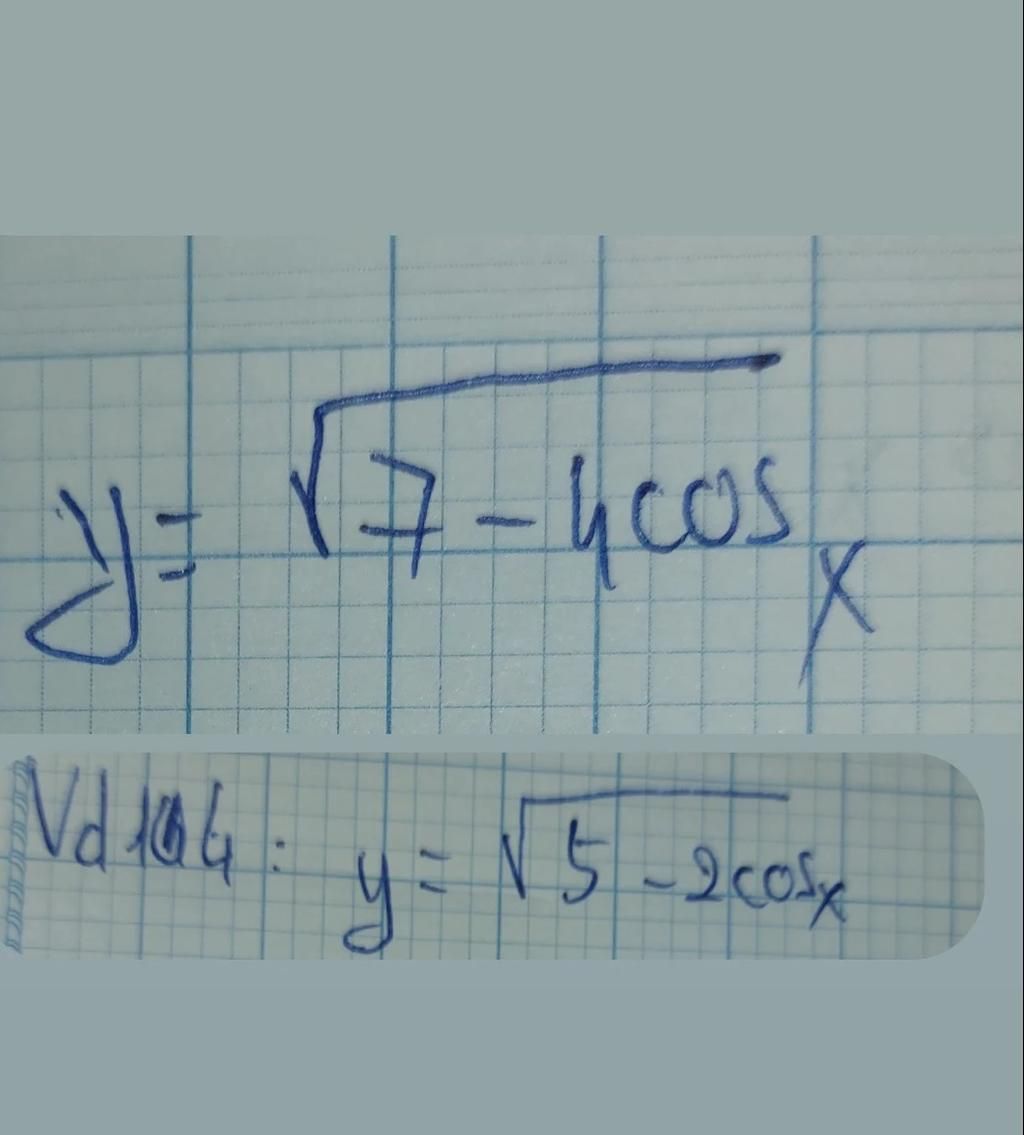 y = √7 - 4cos x
Vd 4: y = √5 - 2cosx